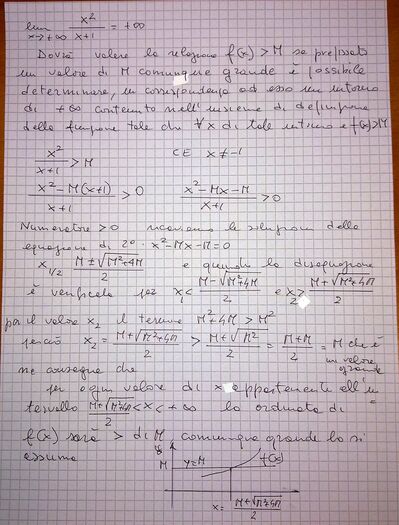 lim x→+∞ x²/(x+1) = +∞
Dovrà valere la relazione f(x) > M se prefissato
un valore di M comunque grande è possibile
determinare, in corrispondenza ad esso un intorno
di +∞ contenuto nell'insieme di definizione
della funzione tale che ∀x di tale intorno è f(x)>M
x²/(x+1) > M CE x≠-1
(x²-M(x+1))/(x+1) > 0 (x²-Mx-M)/(x+1) > 0
Numeratore > 0 ricaviamo le soluzioni della
equazione di 2° x²-Mx-M=0
x1/2 (M±√(M²+4M))/2 e quindi la disequazione
è verificata per x1< (M-√(M²+4M))/2 e x2> (M+√(M²+4M))/2
per il valore x2 il termine M²+4M > M²
perciò x2 = (M+√(M²+4M))/2 > (M+√M²)/2 = (M+M)/2 = M che è
un valore
grande
ne consegue che
per ogni valore di x appartenente all'in
tervallo (M+√(M²+4M))/2 < x < +∞ la ordinata di
f(x) sarà > di M, comunque grande lo si
assuma
M y=M f(x)
x = (M+√(M²+4M))/2